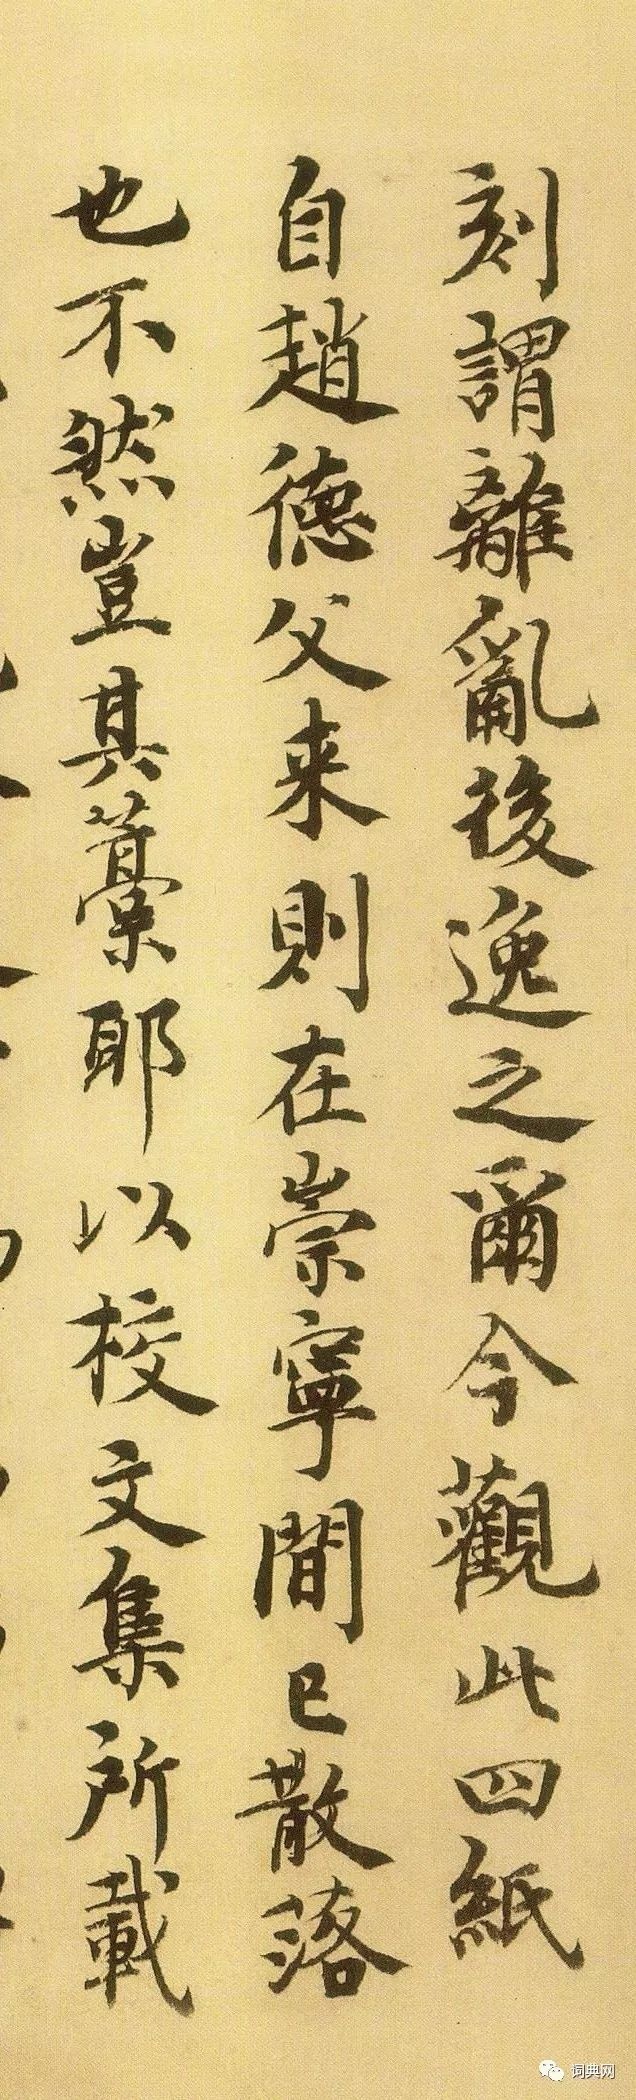 刻謂離亂後逸之爾今觀此四紙
自趙德父来則在崇寧間已散落
也不然豈其藁耶以校文集所載
词典网